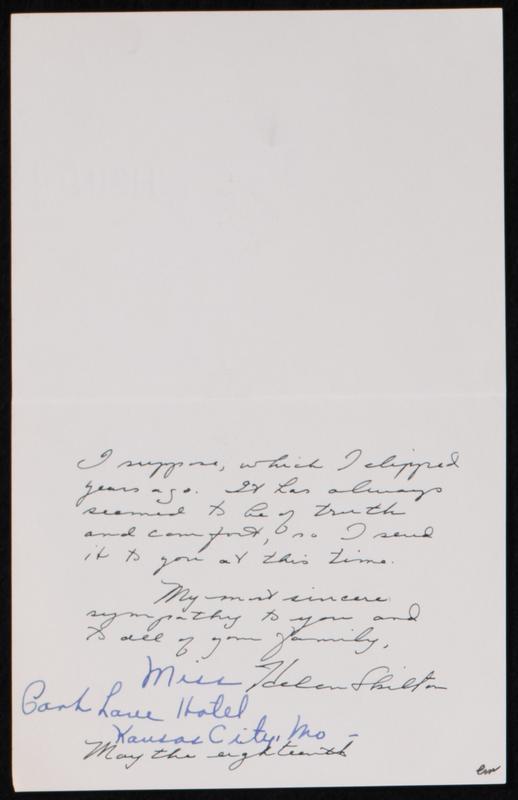 I suppose, which I clipped
years ago. It has always
seemed to be of truth
and comfort, so I send
it to you at this time.
My most sincere
sympathy to you and
to all of your family,
Miss Helen Shilton
Park Lane Hotel
Kansas City, Mo -
May the eighteenth